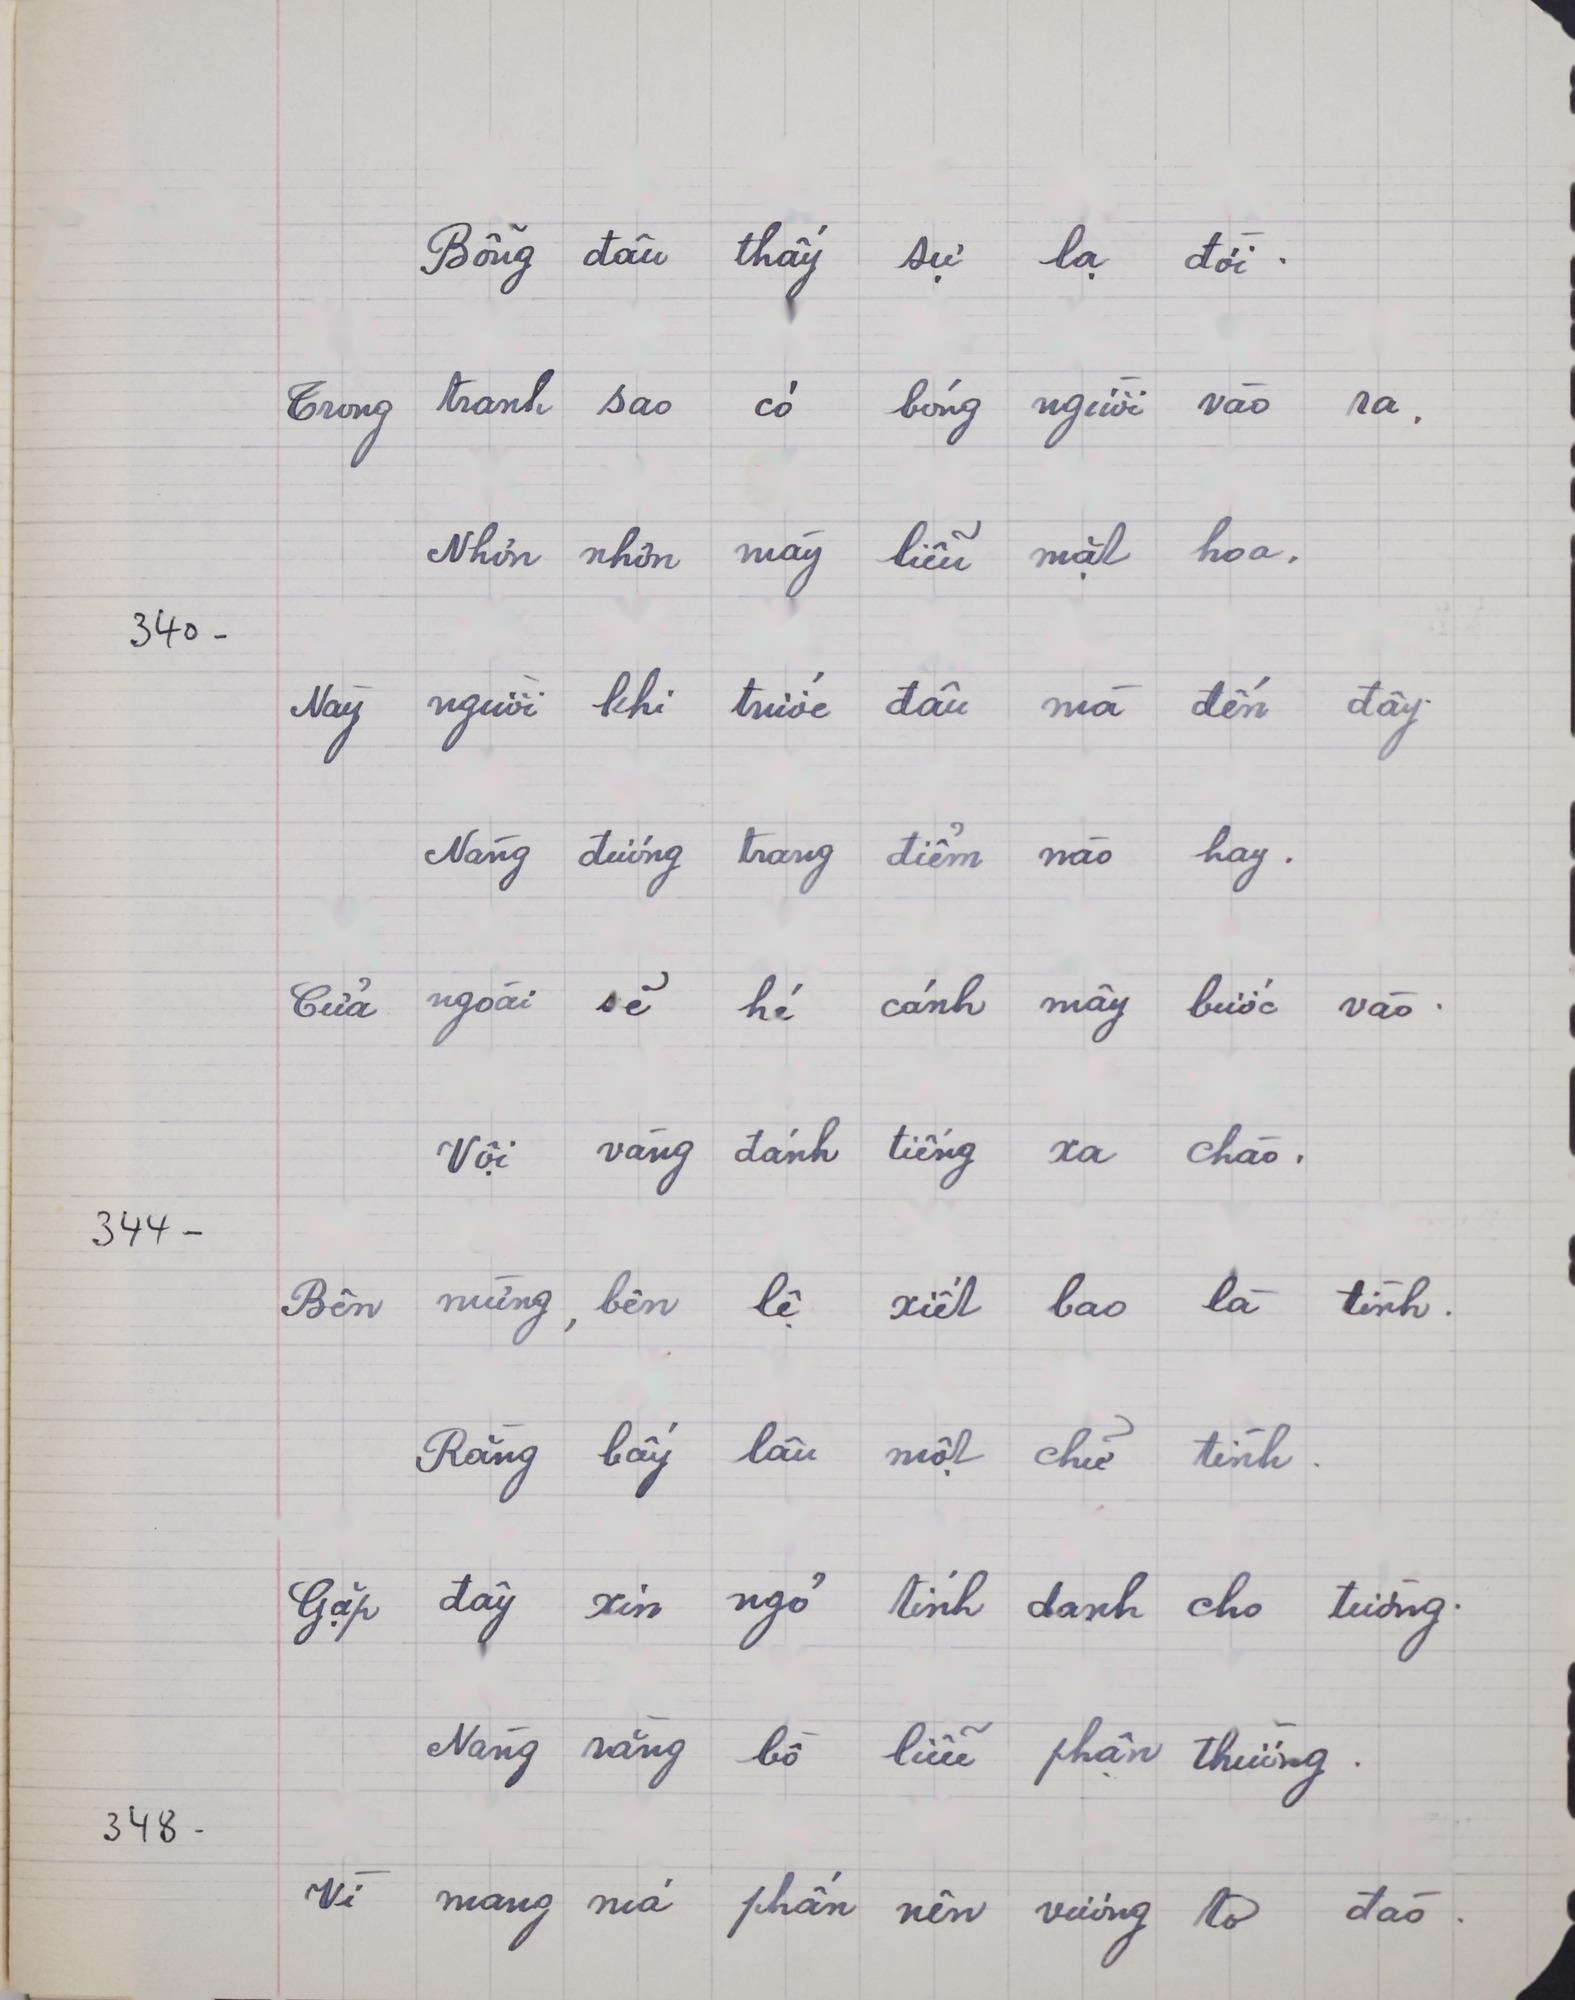 Bỗng đâu thấy sự lạ đời.
Trong tranh sao có bóng người vào ra.
Nhởn nhơn mày liễu mặt hoa.
340-
Này người khi trước đâu mà đến đây.
Nàng đương trang điểm nào hay.
Cửa ngoài sẽ hé cánh mây bước vào.
Vội vàng đánh tiếng xa chào.
344-
Bên mừng, bên lệ xiết bao là tình.
Rằng bấy lâu một chữ tình.
Gặp đây xin ngỏ tính danh cho tường.
Nàng rằng bồ liễu phận thường.
348-
Vì mang má phấn nên vương tơ đào.